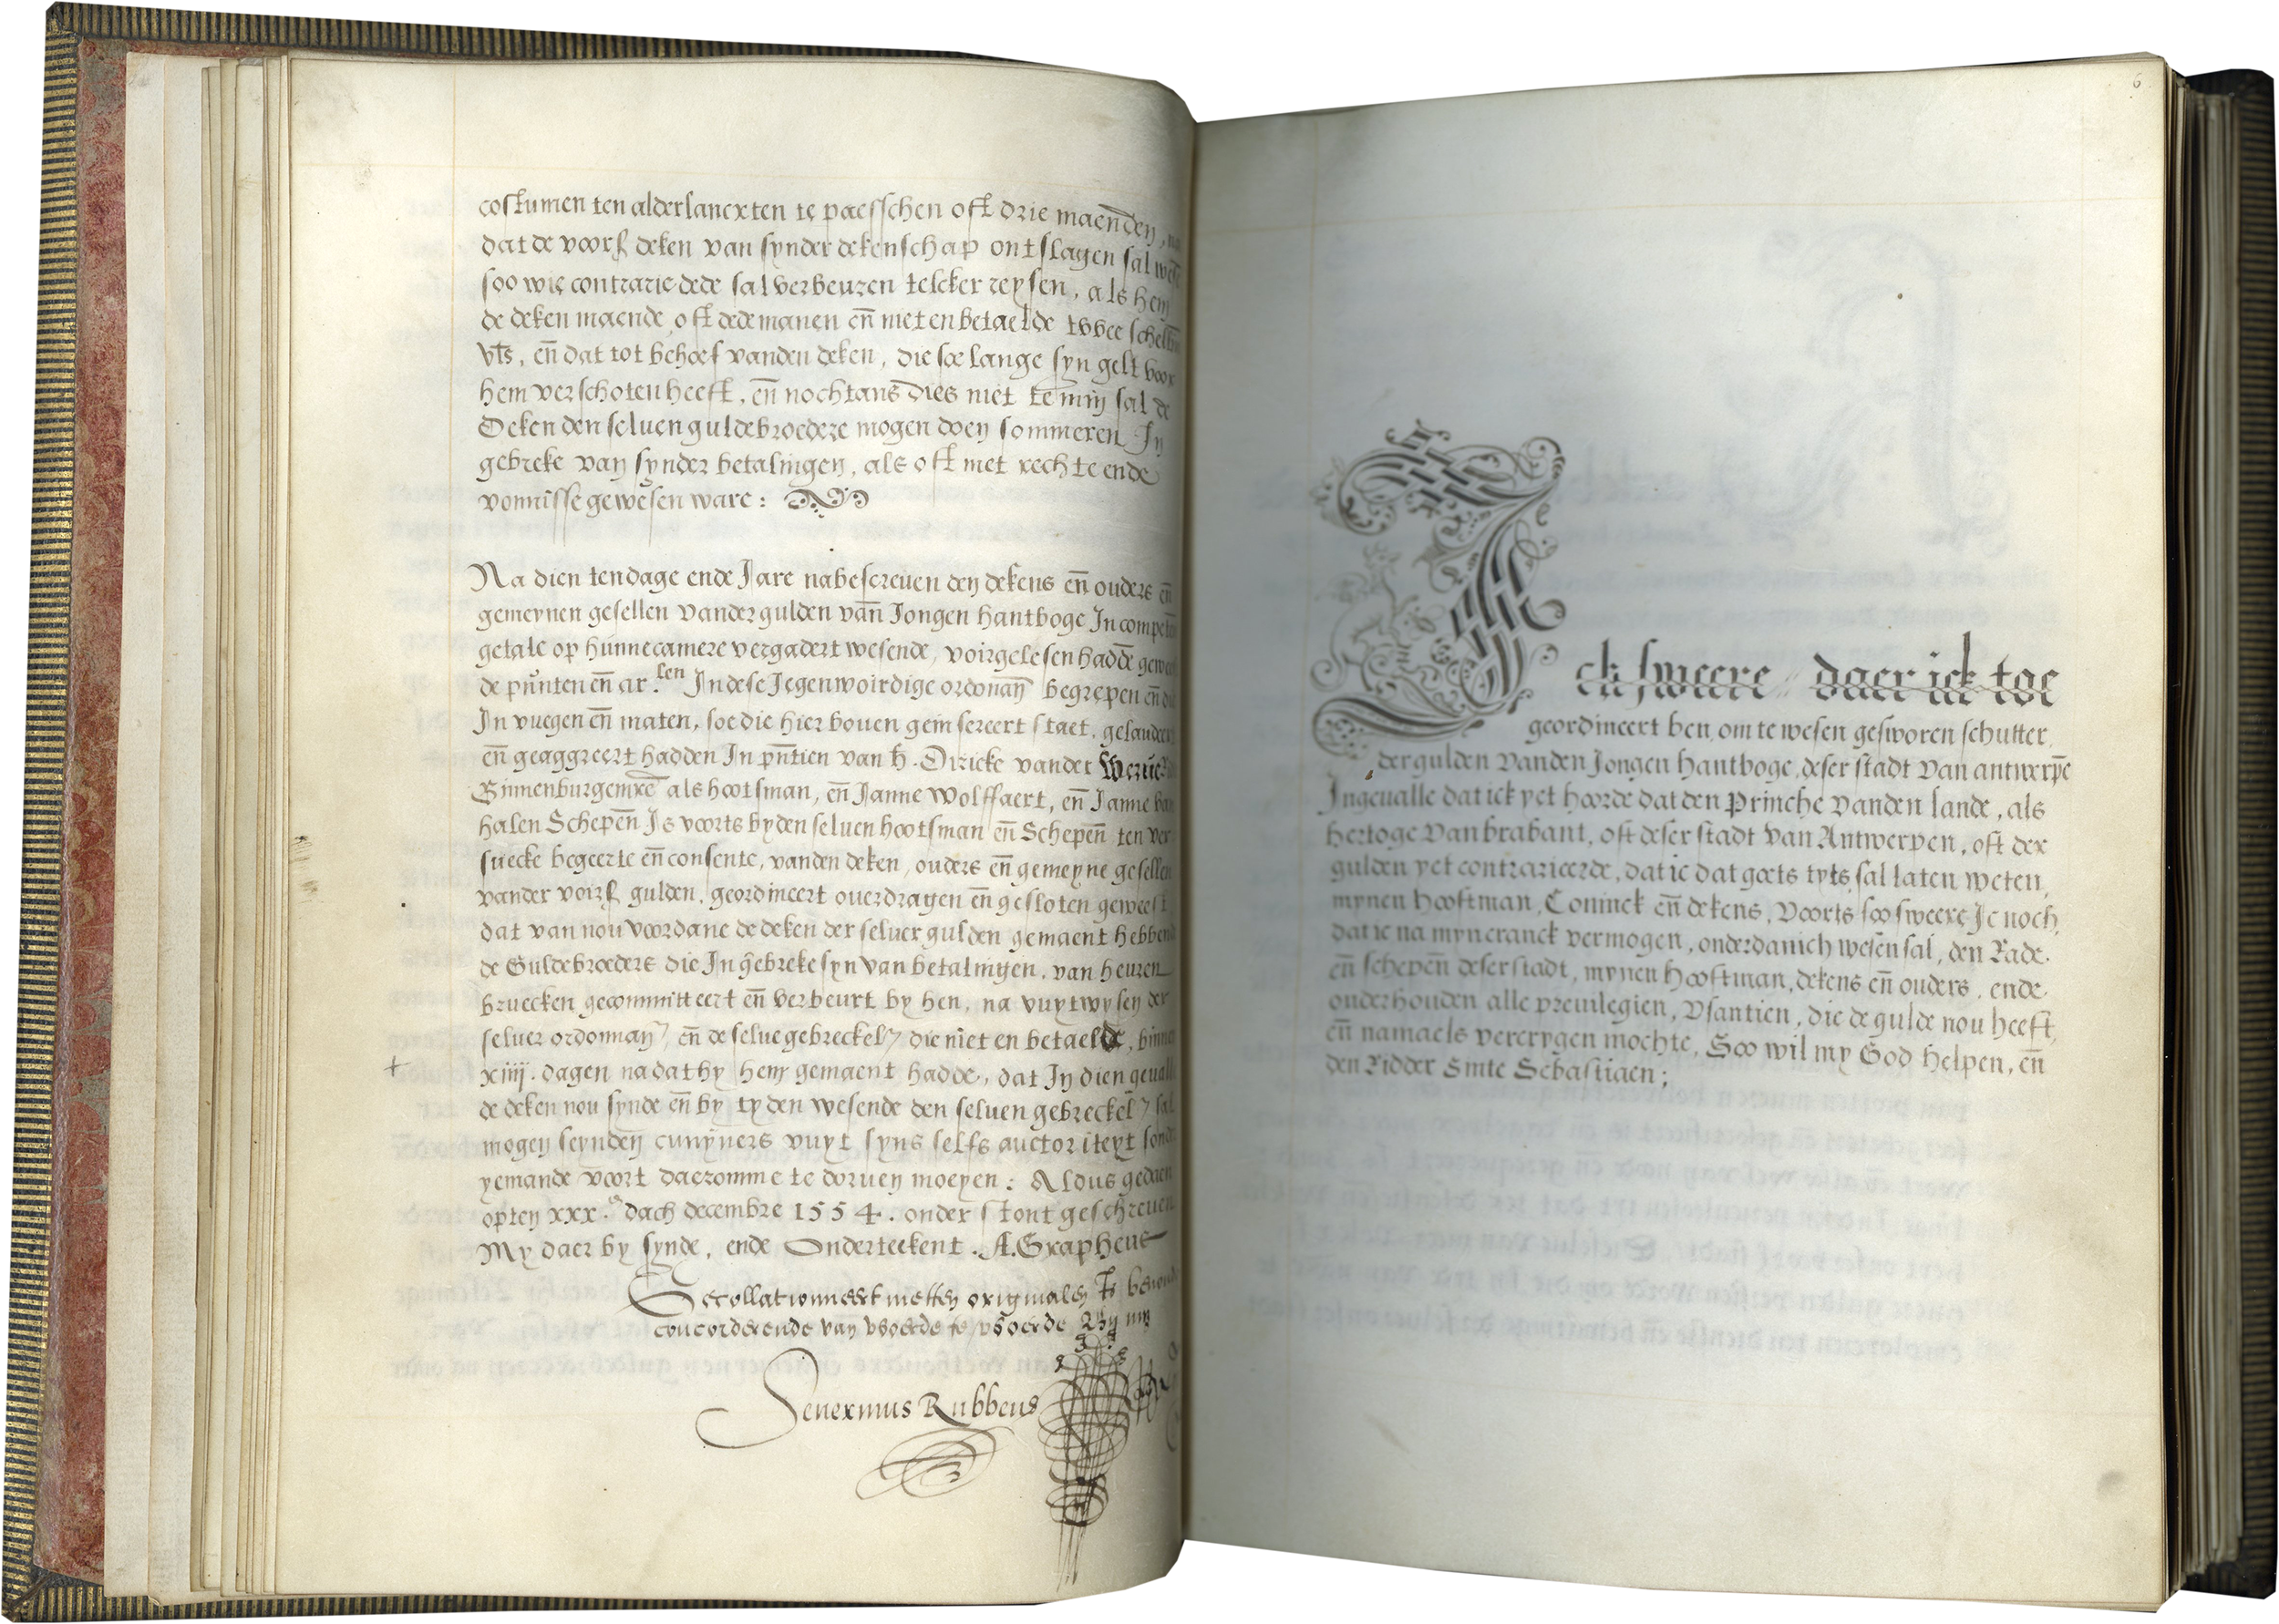 costumen ten alderlancxten te paesschen oft drie maenden,
dat de voors deken van synder dekenschap ontslagen sal
soo wie contrarie dede sal verbeuren telcker reysen, als hem
de deken maende oft dede manen en̄ niet en betaelde twee
vts, en̄ dat tot behoef vanden deken, die soe lange syn gelt voor
hem verschoten heeft, en̄ nochtans dies niet te min sal de
Deken den seluen guldebroedere mogen doen sommeren In
gebreke van synder betalingen, als oft met rechte ende
vonnisse gewesen ware:
Na dien ten dage ende Jare nabescreuen den dekens en̄ ouders en̄
gemeynen gesellen vander gulden van Jongen hantboge In
getale op hunne camere vergadert wesende, voirgelesen hadde
de punten en̄ ar.len In dese Jegenwoirdige ordonan̄ begrepen en̄
In vuegen en̄ maten, soe die hier bouen gein sereert staet,
en̄ geaggreert hadden In pn̄tien van h. Diricke vander
Binnenburgemre als hootsman, en̄ Janne Wolffaert, en̄ Janne
halen Schepen̄ Is voorts by den seluen hootsman en̄ Schepen̄ ten ver
suecke begeerte en̄ consente, vanden deken, ouders en̄ gemeyne gesellen
vander voirs gulden, geordineert ouerdragen en̄ gesloten geweest
dat van nou voordane de deken der seluer gulden gemaent hebbende
de Guldebroeders die In gebreke syn van betalingen, van heuren
bruecken gecommitteert en̄ verbeurt by hen, na vuytwysen der
seluer ordonnan, en̄ de selue gebreckel die niet en betaelde, binnen
xiiij. dagen na dat hy hem gemaent hadde, dat In dien
de deken nou synde en̄ by tyden wesende den seluen gebreckel sal
mogen seynden cunyners vuyt syns selfs auctoriteyt
yemande voort daeromme te doruen moeyen: Aldus gedaen
opten xxx.e dach decembre 1554. onder stont geschreuen
My daer by synde, ende Onderteekent. A. Grapheus
Gecollationneert metten originalen Is
concorderende van woerde te woerde By my
Seuerinus Rubbeus
6
Ick sweere daer ick toe
geordineert ben, om te wesen gesworen schutter,
der gulden vanden Jongen hantboge, deser stadt van antwerpē
Ingeualle dat ick yet hoorde dat den Prinche vanden lande, als
hertoge van brabant, oft deser stadt van Antwerpen, oft der
gulden yet contrarieerde, dat ic dat goets tyts sal laten weten,
mynen hooftman, Coninck en̄ dekens, Voorts soo sweere Ic noch,
dat ic na myncranck vermogen, onderdanich wesen sal, den Rade.
en̄ schepen̄ deser stadt, mynen hooftman, dekens en̄ ouders, ende
onderhouden alle preuilegien, Vsantien, die de gulde nou heeft,
en̄ namaels vercrygen mochte, Soo wil my God helpen, en̄
den Ridder Sinte Sebastiaen;